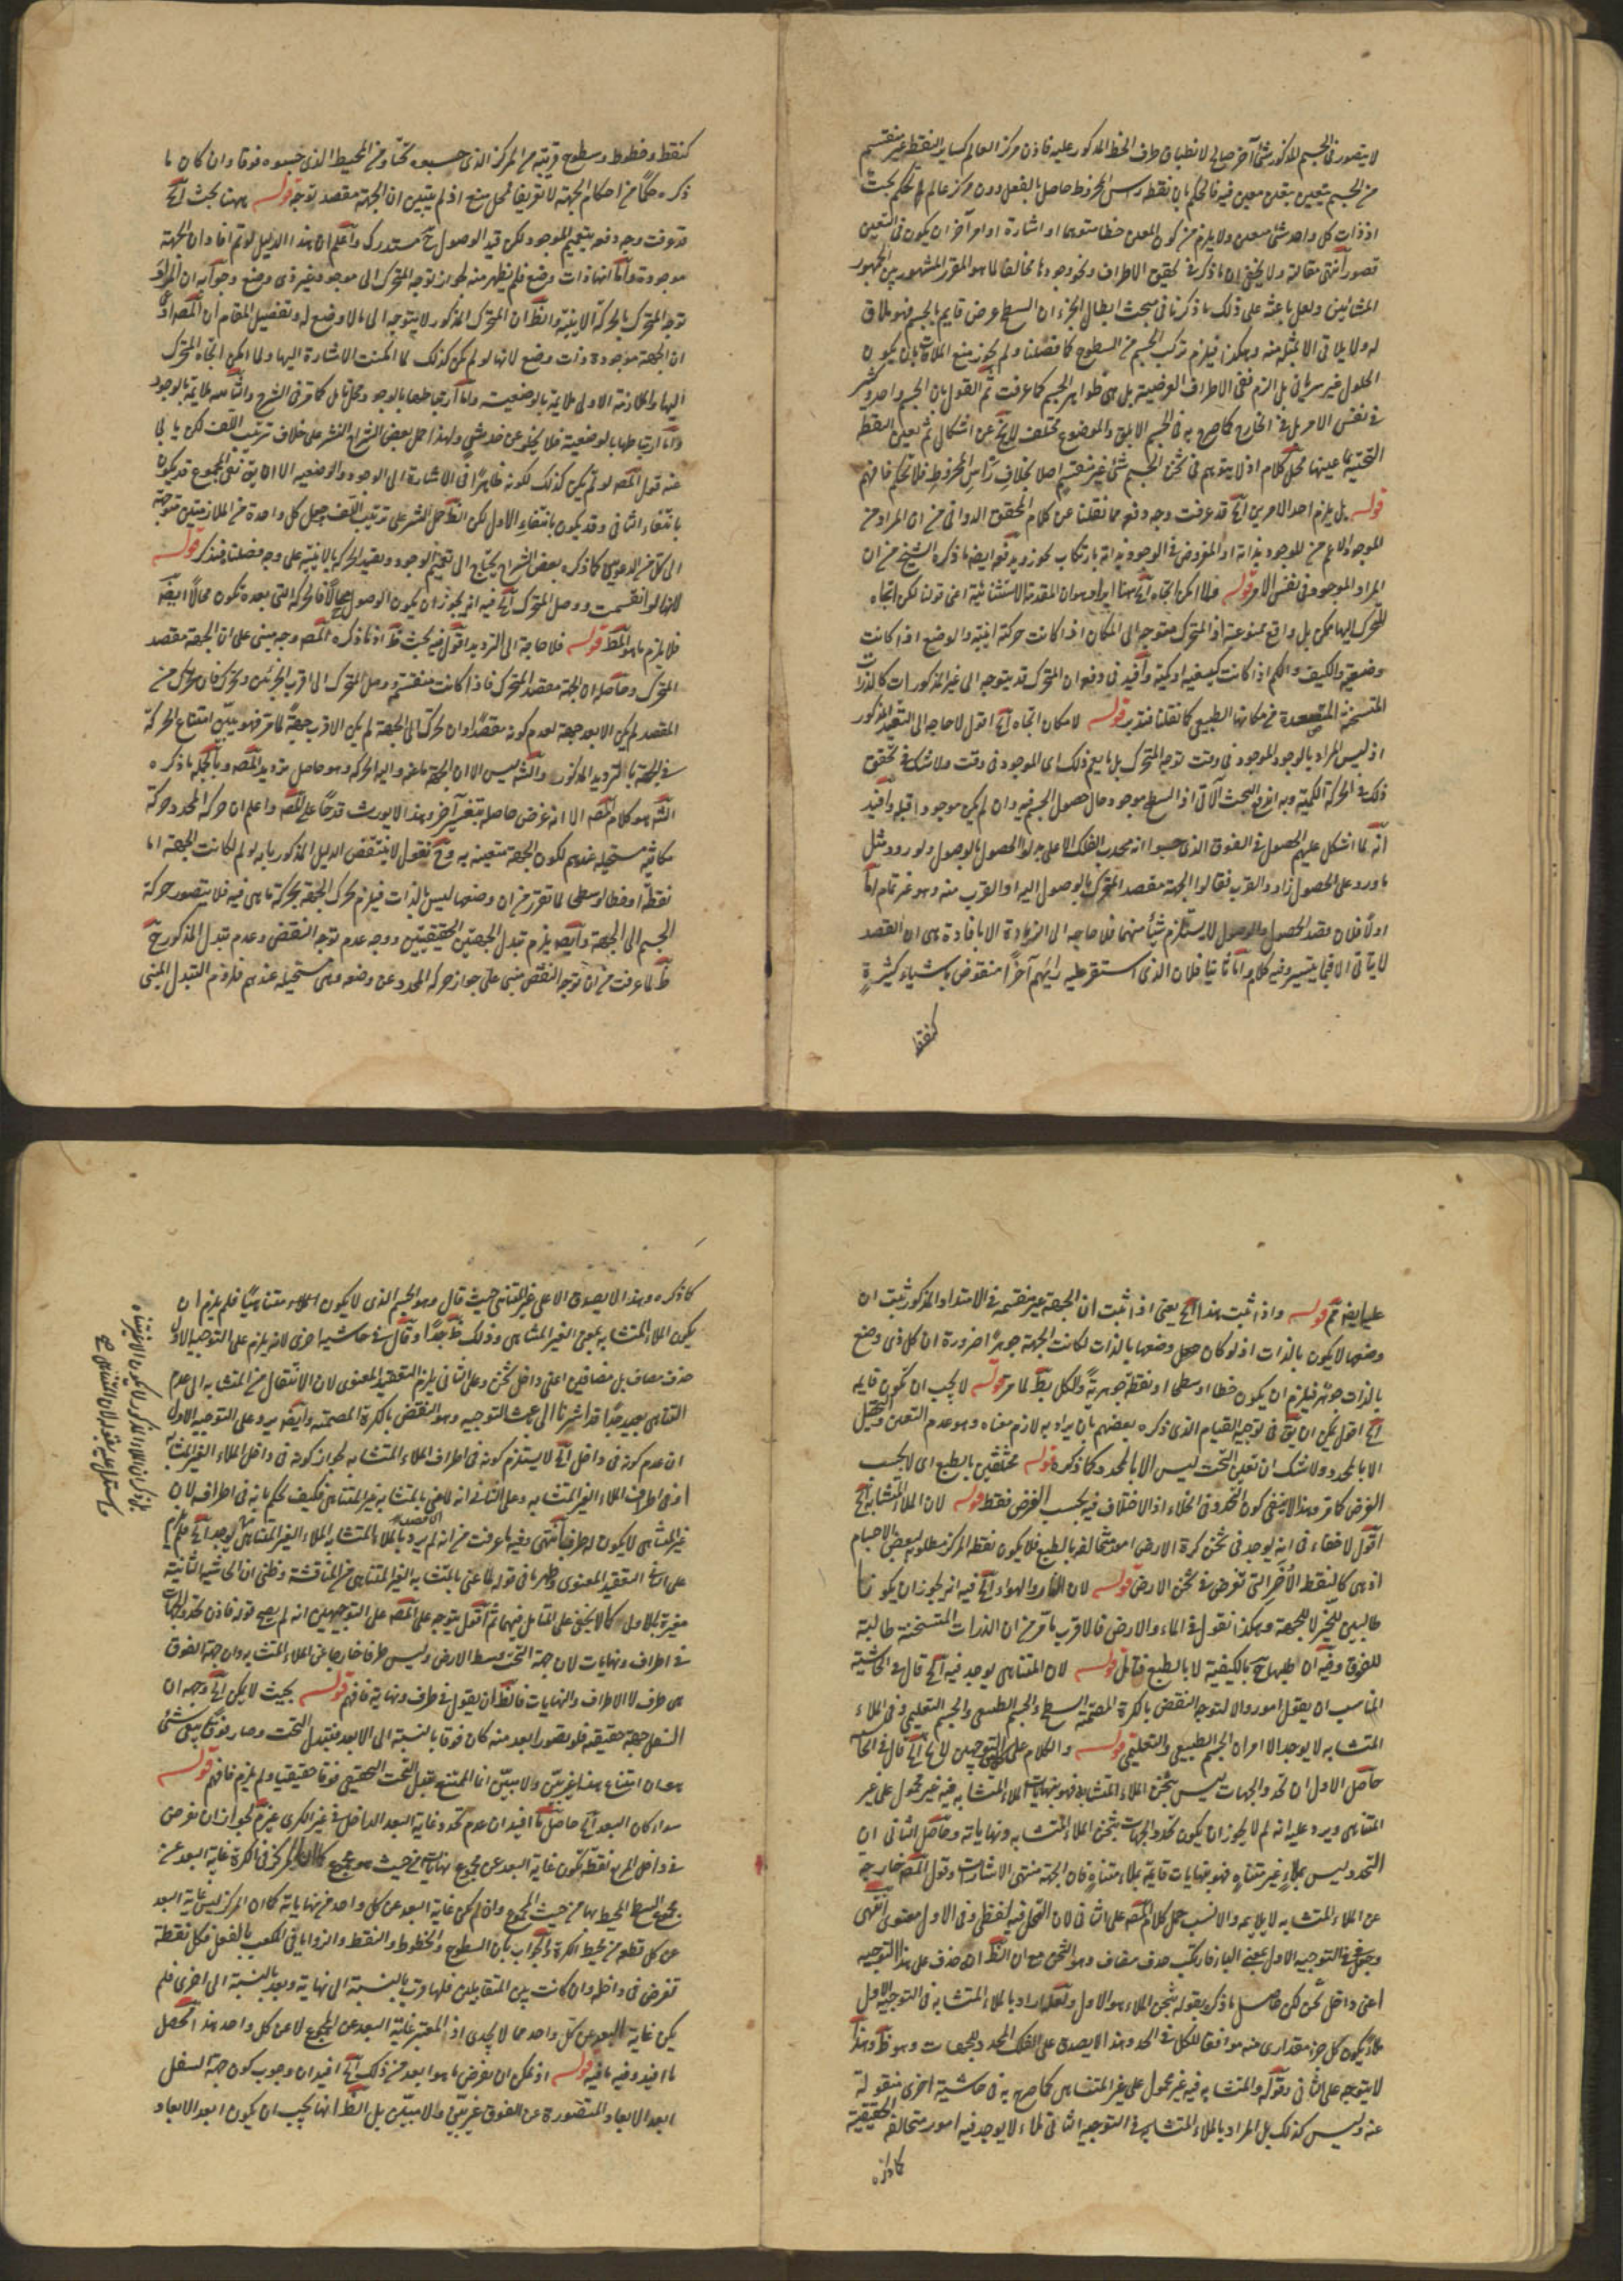 لا يتصور في الجسم المذكور شئ آخر صالح لانطباق طرف الخط المذكور عليه فاذن مركز العالم كساير النقط غير منقسم
من الجسم يتعين بتعين معين فيه فالحكم بان نقطة رأس المخروط حاصل بالفعل دون مركز عالم تحكم بحت
اذ ذات كل واحد شئ معين ولا يلزم من كون المعين خطا متوهما او اشارة او امر آخر ان يكون في التعين
تصور انتهى مقالته ولا يخفى ان ما ذكره في تحقيق الاطراف ونحو وجودها مخالف لما هو المقرر المشهور بين الجمهور
المشائين ولعل باعثه على ذلك ما ذكرنا في مبحث ابطال الجزء ان السطح عرض قايم بالجسم فهو ملاق
له ولا يلاقى الا بمثله منه وهكذا فيلزم تركب الجسم من السطوح كما فصلنا ولم يجوز منع الملاقات بان يكون
الحلول غير سرياني بل الزم نفى الاطراف العرضية بل هي ظواهر الجسم كما عرفت ثم القول بان الجسم واحد
في نفس الامر بل في الخارج كما صرح به في الجسم الابلق والموضوع مختلف لا يخ عن اشكال ثم تعين النقطة
التحتية بما عينها محل كلام اذ لا يتوهم في ثخن الجسم شئ غير منقسم اصلا بخلاف رأس المخروط فلا تحكم فافهم
قوله بل يلزم احد الامرين آه قد عرفت وجه دفعه مما نقلنا عن كلام المحقق الدواني من ان المراد من
الموجود الاعم من الموجود بذاته او المفروض في الوجود بذاته بارتكاب تجوز ويدفع ايضا ما ذكره الشيخ من ان
المراد الموجود في نفس الامر قوله ولما امكن اتجاه آه ههنا ايراد وهو ان المقدمة الاستثنائية اعنى قولنا لكن اتجاه
المتحرك اليها ممكن بل واقع ممنوعة اذ المتحرك متوجه الى المكان اذا كانت حركته اينية والوضع اذا كانت
وضعية والكيف والكم اذا كانت كيفية او كمية وافيد في دفعه ان المتحرك قد يتوجه الى غير المذكورات كالذرات
المتسخنة المتصعدة من مكانها الطبيعي كما نقلنا فتدبر قوله لامكان اتجاه آه اقول لا حاجة الى التقييد المذكور
اذ ليس المراد بالوجود الموجود في وقت توجه المتحرك بل ما يعم ذلك اى الموجود في وقت ولا شك في تحقق
ذلك في الحركة الكمية وبه اندفع البحث الآتي اذ السطح موجود حال حصول الجسم فيه وان لم يكن موجودا قبله وافيد
انه لما اشكل عليهم الحصول في الفوق الذي حسبوا انه محدب الفلك الاعلى بدلوا الحصول بالوصول ولورود مثل
ما ورد على الحصول زادوا القرب فقالوا الجهة مقصد المتحرك بالوصول اليه او القرب منه وهو غير تام اما
اولا فلان بقصد الحصول والوصول لا يستلزم شيئا منهما فلا حاجة الى الزيادة الا بافادة هي ان القصد
لا يتاتى الا فيما يتيسر وفيه كلام اما ثانيا فلان الذي استقر عليه رايهم آخرا منقوض باشياء كثيرة
كنقط
كنقط وخطوط وسطوح قريبة من المركز الذي حسبوه تحتا ومن المحيط الذي حسبوه فوقا وان كان ما
ذكره حكما من احكام الجهة لا تعريفا فمحل منع اذ لم يتبين ان الجهة مقصد توجه قوله ههنا بحث آه
قد عرفت وجه دفعه بتعميم الموجود لكن قيد الوصول ح مستدرك واعلم ان هذا الدليل لو تم افاد ان الجهة
موجودة واما انها ذات وضع فلم يظهر منه لجواز توجه المتحرك الى موجود غير ذى وضع وجوابه ان المراد
توجه المتحرك بالحركة الاينية والظ ان المتحرك المذكور لا يتوجه الى ما لا وضع له وتفصيل المقام ان المصـ ادعى
ان الجهة موجودة ذات وضع لانها لو لم تكن كذلك لما امكنت الاشارة اليها ولما امكن اتجاه المتحرك
اليها والملازمة الاولى ملايمة بالوضعية واما ارتباطها بالوجود ومحل تامل كما مر في الشرح والثانية ملايمة بالوجود
واما ارتباطها بالوضعية فلا يخلو عن خدشة ولهذا حمل بعض الشراح النشر على خلاف ترتيب اللف لكن يابى
عنه قول المصـ لو لم تكن كذلك لكونه ظاهرا في الاشارة الى الوجود والوضعية الا ان يق نفى المجموع قد يكون
بانتفاء الثاني وقد يكون بانتفاء الاول لكن الظ حمل النشر على ترتيب اللف وجعل كل واحدة من الملازمتين متوجة
الى كل من الدعويين كما ذكره بعض الشراح يحتاج الى تعميم الوجود وتقييد الحركة بالاينية على وجه فصلنا فتذكر قوله
لانها لو انقسمت ووصل المتحرك آه فيه انه يجوز ان يكون الوصول محالا فالحركة التي بعده تكون محالا ايضا
فلا يلزم ما هو المط قوله فلا حاجة الى الترديد اقول فيه بحث ظ اذ ما ذكره المصـ وجه مبنى على ان الجهة مقصد
المتحرك وحاصله ان الجهة مقصد المتحرك فاذا كانت منقسمة ووصل المتحرك الى اقرب الجزئين وتحرك فان تحرك من
المقصد لم يكن الابعد جهة لعدم كونه مقصدا وان تحرك الى الجهة لم يكن الاقرب جهة لما مر فهو يبين امتناع الحركة
في الجهة بالترديد المذكور والشـ ليس الا ان الجهة ما عنه واليه الحركة وهو حاصل ترديد المصـ وبالجملة ما ذكره
الشـ هو كلام المصـ الا انه غرض حاصله بتغيير آخر وهذا لا يورث قدحا على المصـ واعلم ان حركة المحدد حركة
مكانية مستحيلة عندهم لكون الجهة متعينة به وح نقول لا ينتقض الدليل المذكور بانه لو تم لكانت الجهة اما
نقطة او خطا او سطحا لما تقرر من ان وضعها ليس بالذات فيلزم تحرك الجهة بحركة ما هي فيه فلا يتصور حركة
الجسم الى الجهة وايضا يلزم تبدل الجهتين الحقيقيتين ووجه عدم توجه النقض وعدم تبدل المذكور ح
ظ لما عرفت من ان توجه النقض مبنى على جواز حركة المحدد عن وضعه وهي مستحيلة عندهم فلزوم التبدل المبنى
عليها ايضا مم قوله واذا ثبت هذا آه يعنى اذا ثبت ان الجهة غير منقسمة في الامتداد المذكور ثبت ان
وضعها لا يكون بالذات اذ لو كان وضعها بالذات لكانت الجهة جوهرا ضرورة ان كل ذى وضع
بالذات جوهر فيلزم ان يكون خطا او سطحا او نقطة جوهرية والكل بط لما مر قوله لا يجب ان تكون قايمة
آه اقول يمكن ان يق في توجيه القيام الذي ذكره بعضهم بان يراد به لازم معناه وهو عدم التعين والتحصل
الا بالمحدد ولا شك ان تعين التحت ليس الا بالمحدد كما ذكره قوله مختلفين بالطبع اى لا بحسب
الفرض كما مر وهذا لا ينفى كون التحدد في الخلاء اذ الاختلاف فيه بحسب الفرض فقط قوله لان الملاء المتشابه آه
اقول لا خفاء في انه يوجد في ثخن كرة الارض امور متخالفة بالطبع فلا يكون نقطة المركز مطلوبة لبعض الاجسام
اذ هي كالنقط الاخر التي تفرض في ثخن الارض قوله لان النار والهواء آه فيه انه يجوز ان يكونا
طالبين للحيز لا للجهة وهكذا نقول في الماء والارض فالاقرب ما مر من ان الذرات المتسخنة طالبة
للفوق وفيه ان طلبها ح بالكيفية لا بالطبع فتامل قوله لان المتناهى يوجد فيه آه قال في الحاشية
المناسب ان يقول امور والا لتوجه النقض بالكرة المصمتة السطح والجسم الطبيعي والجسم التعليمي وفي الملاء
المتشابه لا يوجد الا امران الجسم الطبيعي والتعليمي قوله والكلام على التوجيهين لا يخ آه قال في الحا
حاصل الاول ان تحدد الجهات ليس بثخن الملاء المتشابه فهو بنهايات الملاء المتشابه فيه غير محمول على غير
المتناهى ويرد عليه انه لم لا يجوز ان يكون تحدد الجهات بثخن الملاء المتشابه ونهاياته وحاصل الثاني ان
التحدد ليس بملاء غير متناه فهو بنهايات قايمة بملاء متناه فان الجهة منتهى الاشارات وقول المصـ خارجة
عن الملاء المتشابه لا يلايمه والانسب حمل كلام المصـ على الثاني لان التمحل فيه لفظى وفي الاول معنوى انتهى
وجعل في التوجيه الاول بمعنى الباء فارتكب حذف مضاف وهو الثخن مع ان الظ ان حذف على هذا التوجيه
اعنى داخل ثخن لكن حاصل ما ذكره بقوله بثخن الملاء هو الاول ولعله اراد بالملاء المتشابه في التوجيه الاول
ما يكون كل جزء مقدارى منه موافقا للكل في الحد وهذا لا يصدق على الفلك المحدد للجهات وهو ظ وهذا
لا يتوجه على الثاني وقوله والمتشابه فيه غير محمول على غير المتناهى كما صرح به في حاشية اخرى منقولة
عنه وليس كذلك بل المراد بالملاء المتشابه في التوجيه الثاني ملاء لا يوجد فيه امور متخالفة الحقيقة
كما ذكره
كما ذكره وهذا لا يصدق الا على غير المتناهى حيث قال وهو الجسم الذي لا يكون متناهيا فلم يلزم ان
يكون الملاء المتشابه بمعنى الغير المتناهى وذلك ظ جدا وقال في حاشية اخرى لانه يلزم على التوجيه الاول
حذف مضاف بل مضافين اعنى داخل ثخن وعلى الثاني يلزم التعقيد المعنوى لان الانتقال من المتشابه الى عدم
التناهى بعيد جدا قد اشرنا الى بحث التوجيه وهو النقض بالكرة المصمتة وايضا يرد على التوجيه الاول
ان عدم كونه في داخل آه لا يستلزم كونه في اطراف الملاء المتشابه لجواز كونه في داخل الملاء الغير المتشابه
او في اطراف الملاء الغير المتشابه وعلى الثاني انه لما عنى بالمتشابه غير المتناهى فكيف يحكم بانه في اطرافه لان
غير المتناهى لا يكون له طرف انتهى وفيه ما عرفت من انه لم يرد بالملاء المتشابه الملاء الغير المتناهى بل ما لا يوجد آه فلم يلزم
على الثاني التعقيد المعنوى وظهر ما في قوله لما عنى بالمتشابه الغير المتناهى من المناقشة وظنى ان الحاشية الثانية
مغيرة للاول كما لا يخفى على المتامل فيهما ثم اقول يتوجه على المصـ على التوجيهين انه لم يصح قوله فاذن تحدد الجهات
في اطراف ونهايات لان جهة التحت وسط الارض وليس طرفا خارجا عن الملاء المتشابه وان جهة الفوق
هي طرف لا الاطراف والنهايات فالظ ان يقول في طرف ونهاية فافهم قوله بحيث لا يمكن آه وجهه ان
السفل جهة حقيقية فلو تصور ابعد منه كان فوقا بالنسبة الى الابعد فيتبدل التحت وصار فوقا بقى شئ
هو ان امتناع هذا غير بين ولا مبين انما الممتنع تبدل التحت الحقيقى فوقا حقيقيا ولم يلزم فافهم قوله
سواء كان البعد آه حاصل ما افيد ان عدم تحدد غاية البعد الداخل في غير الكرى غير مم لجواز ان نفرض
في داخل المربع نقطة تكون غاية البعد عن مجموع نهايات من حيث هو مجموع كما ان المركز في الكرة غاية البعد عن
مجموع السطح المحيط بها من حيث المجموع وان لم تكن غاية البعد عن كل واحد من نهاياته كما ان المركز ليس غاية البعد
عن كل نقطة من محيط الكرة والجواب بان السطوح والخطوط والنقط والزوايا في المكعب بالفعل فكل نقطة
تفرض في داخله وان كانت بين المتقابلين فلها قرب بالنسبة الى نهاية وبعد بالنسبة الى اخرى فلم
يكن غاية البعد عن كل واحد مما لا يجدى اذ المعتبر غاية البعد عن المجموع لا عن كل واحد هذا محصل
ما افيد وفيه ما فيه قوله اذ يمكن ان يفرض ما هو ابعد من ذلك آه افيد ان وجوب كون جهة السفل
ابعد الابعاد المتصورة عن الفوق غير بين ولا مبين بل الظ انها يجب ان يكون ابعد الابعاد